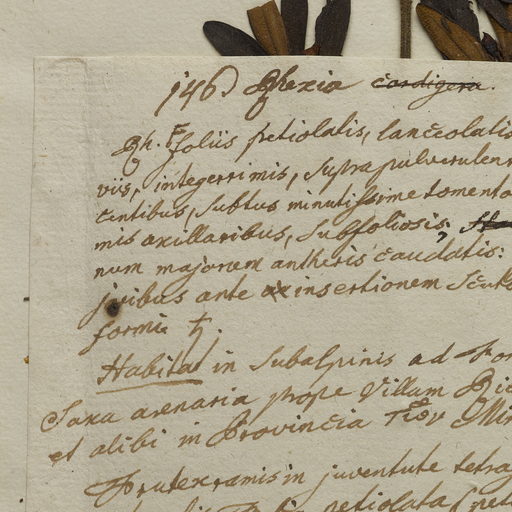 146) Rhexia cordigera.
Rh. Foliis petiolatis, lanceolatis
viis, integerrimis, supra pulverulent
centibus, subtus minutissime tomento
mis axillaribus, subfoliosis,
num majorem antheris caudatis:
joribus ante insertionem
formi ♄.
Habitat in subalpinis ad
Saxa arenaria prope Villam
et alibi in Provincia
Frutex ramis in juventute tetrag
petiolata (pet